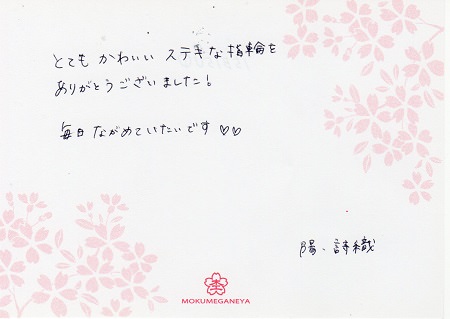 とても かわいい ステキな指輪を
ありがとうございました!
毎日 ながめていたいです♡♡
陽、詩織
杢
MOKUMEGANEYA